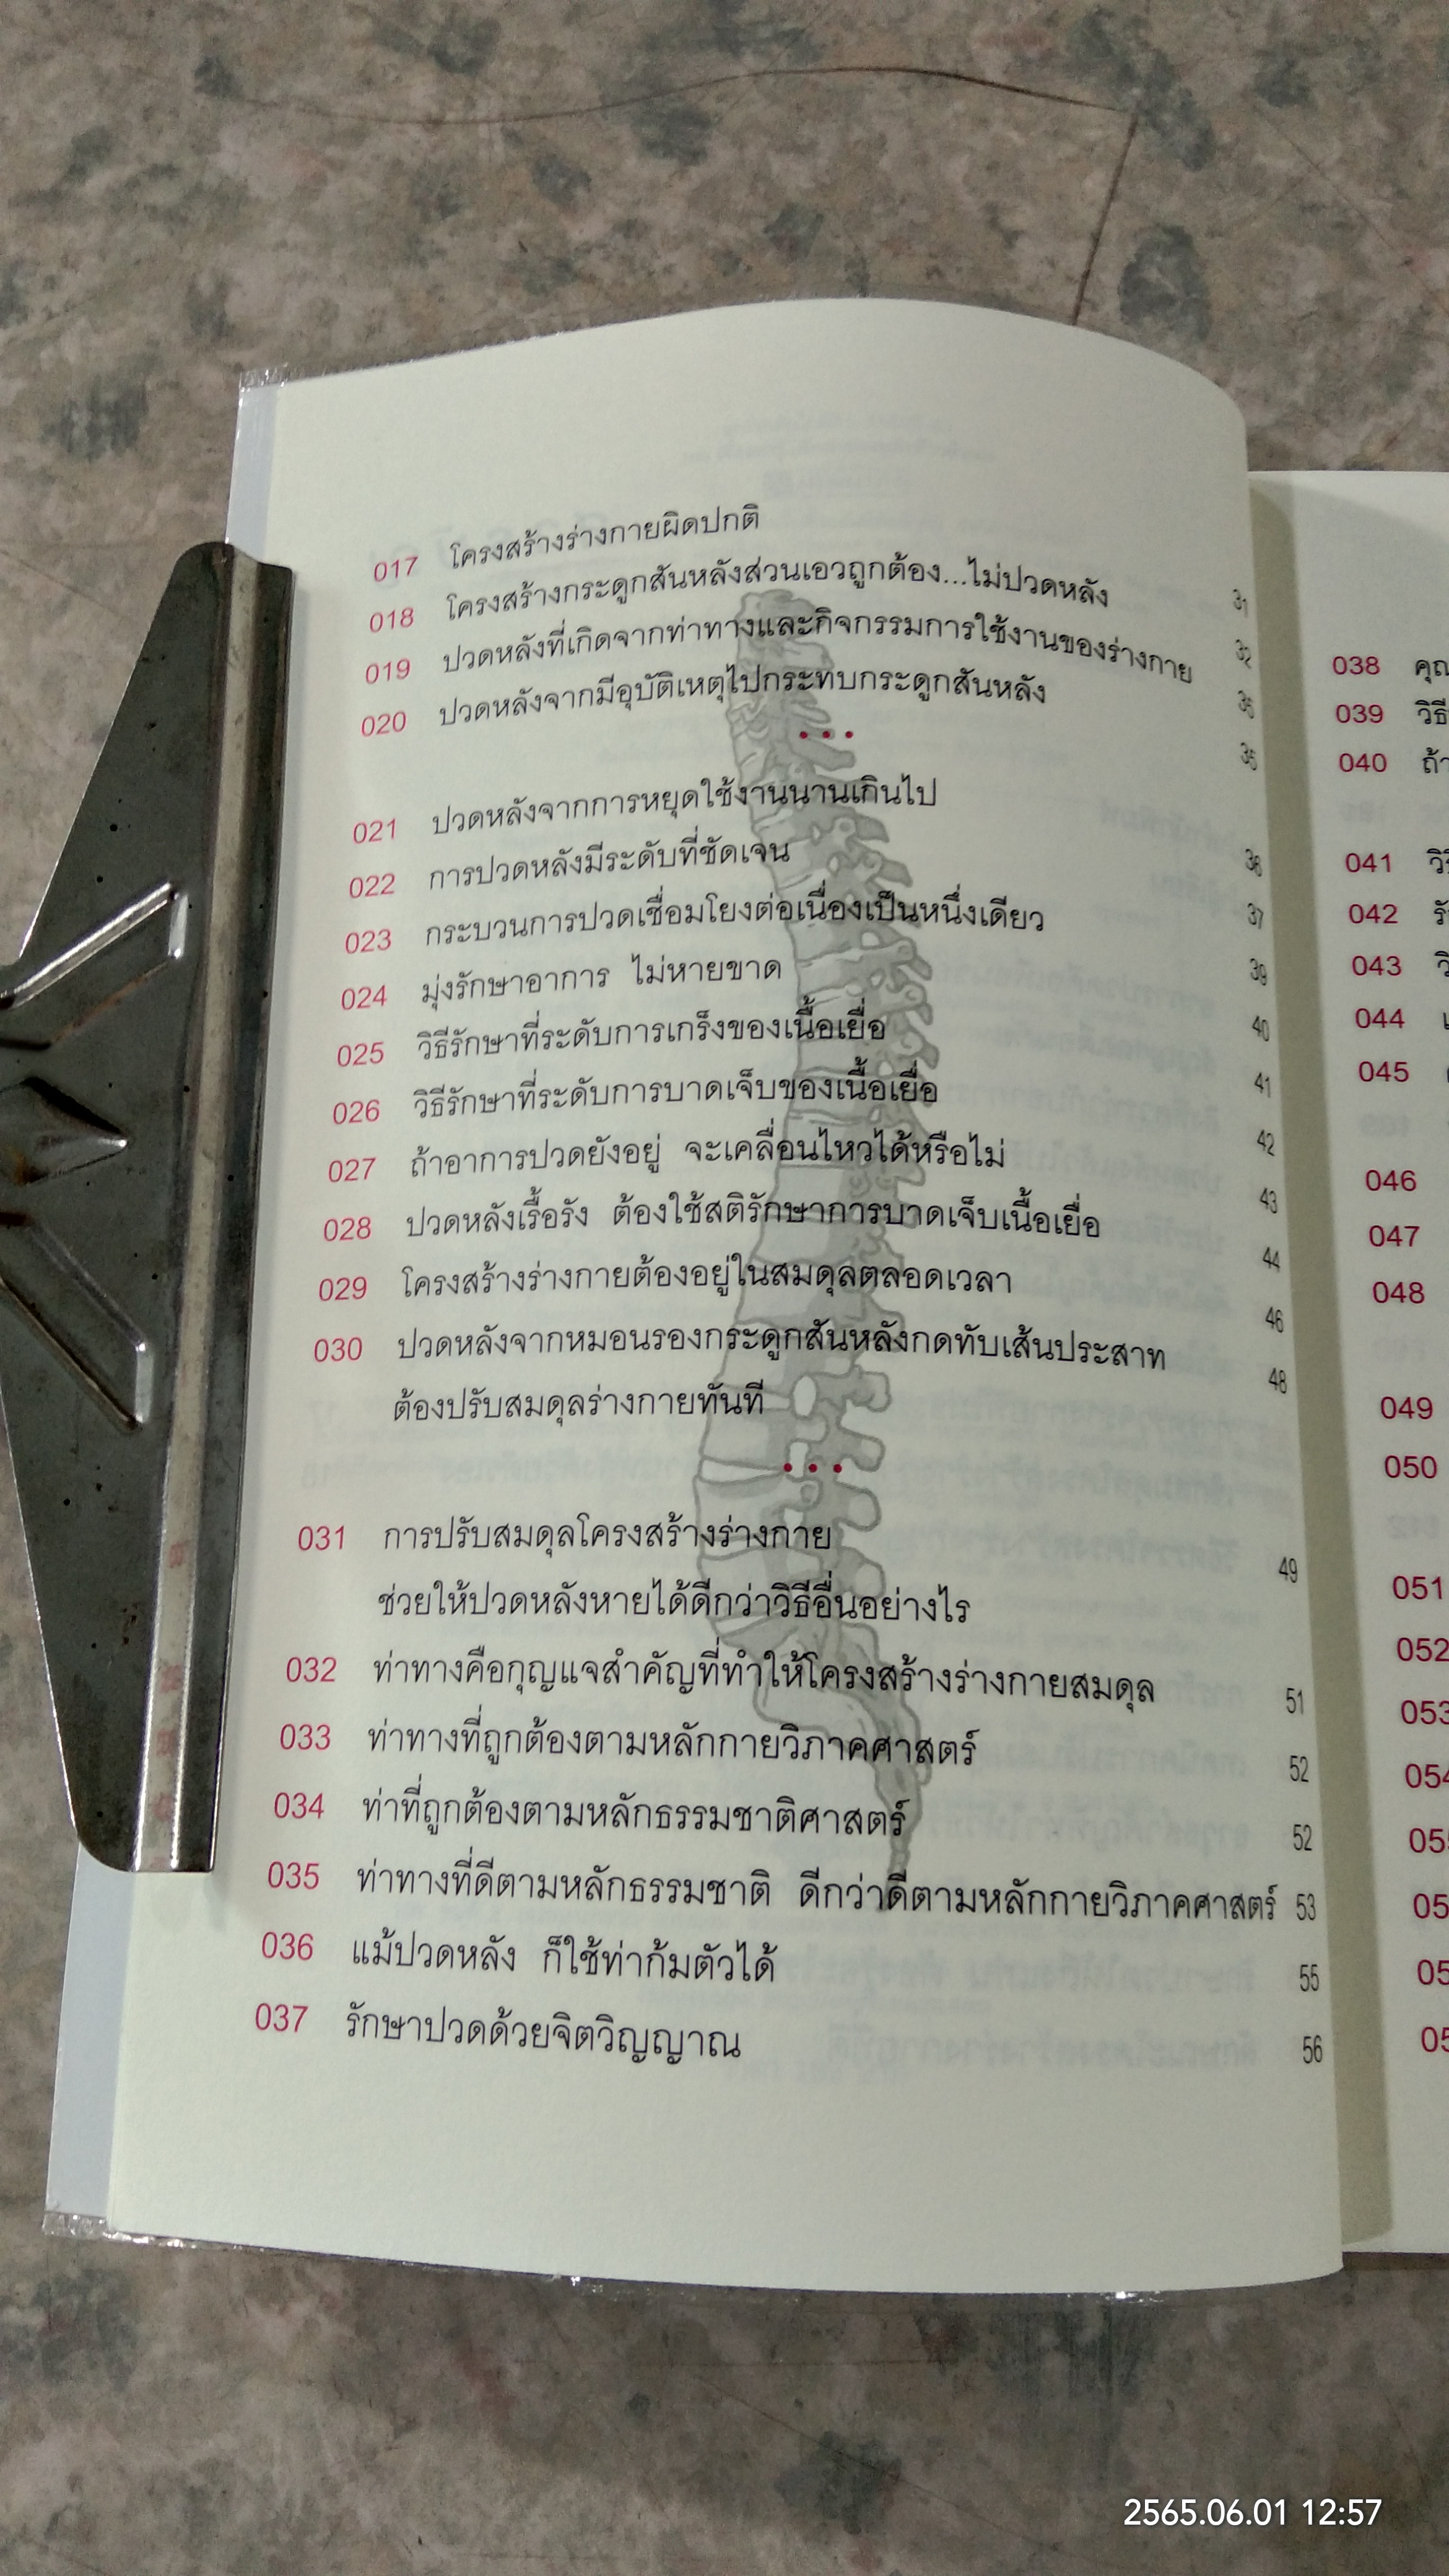 017 โครงสร้างร่างกายผิดปกติ 31
018 โครงสร้างกระดูกสันหลังส่วนเอวถูกต้อง...ไม่ปวดหลัง 32
019 ปวดหลังที่เกิดจากท่าทางและกิจกรรมการใช้งานของร่างกาย
020 ปวดหลังจากมีอุบัติเหตุไปกระทบกระดูกสันหลัง
• • •
021 ปวดหลังจากการหยุดใช้งานนานเกินไป
022 การปวดหลังมีระดับที่ชัดเจน 37
023 กระบวนการปวดเชื่อมโยงต่อเนื่องเป็นหนึ่งเดียว 39
024 มุ่งรักษาอาการ ไม่หายขาด 40
025 วิธีรักษาที่ระดับการเกร็งของเนื้อเยื่อ 41
026 วิธีรักษาที่ระดับการบาดเจ็บของเนื้อเยื่อ 42
027 ถ้าอาการปวดยังอยู่ จะเคลื่อนไหวได้หรือไม่ 43
028 ปวดหลังเรื้อรัง ต้องใช้สติรักษาการบาดเจ็บเนื้อเยื่อ 44
029 โครงสร้างร่างกายต้องอยู่ในสมดุลตลอดเวลา 46
030 ปวดหลังจากหมอนรองกระดูกสันหลังกดทับเส้นประสาท 48
ต้องปรับสมดุลร่างกายทันที
• • •
031 การปรับสมดุลโครงสร้างร่างกาย 49
ช่วยให้ปวดหลังหายได้ดีกว่าวิธีอื่นอย่างไร
032 ท่าทางคือกุญแจสำคัญที่ทำให้โครงสร้างร่างกายสมดุล 51
033 ท่าทางที่ถูกต้องตามหลักกายวิภาคศาสตร์ 52
034 ท่าที่ถูกต้องตามหลักธรรมชาติศาสตร์ 52
035 ท่าทางที่ดีตามหลักธรรมชาติ ดีกว่าดีตามหลักกายวิภาคศาสตร์ 53
036 แม้ปวดหลัง ก็ใช้ท่าก้มตัวได้ 55
037 รักษาปวดด้วยจิตวิญญาณ 56
038
039
040
041
042
043
044
045
046
047
048
049
050
051
052
2565.06.01 12:57